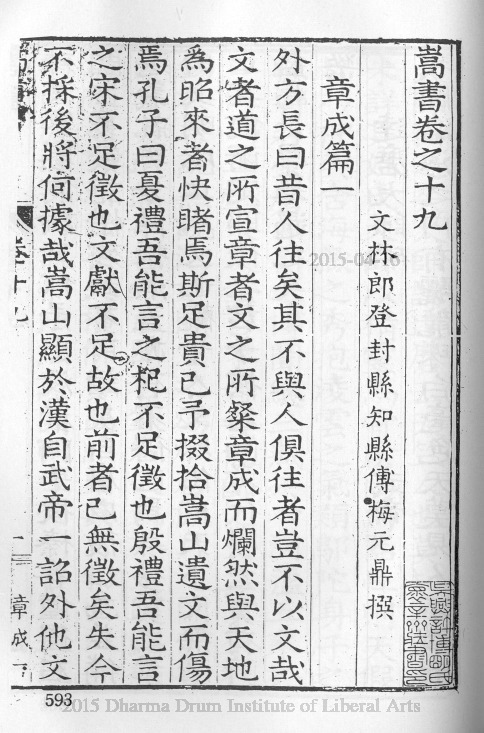 嵩書卷之十九
文林郎登封縣知縣傅梅元鼎撰
章成篇一
外方長曰昔人往矣其不與人俱往者豈不以文哉
文者道之所宣章者文之所粲章成而爛然與天地
為昭來者快睹焉斯足貴已予掇拾嵩山遺文而傷
焉孔子曰夏禮吾能言之杞不足徵也殷禮吾能言
之宋不足徵也文獻不足故也前者已無徵矣失今
不採後將何據哉嵩山顯於漢自武帝一詔外他文
卷十九
章成
一
593
2015-04-16
2015 Dharma Drum Institute of Liberal Arts